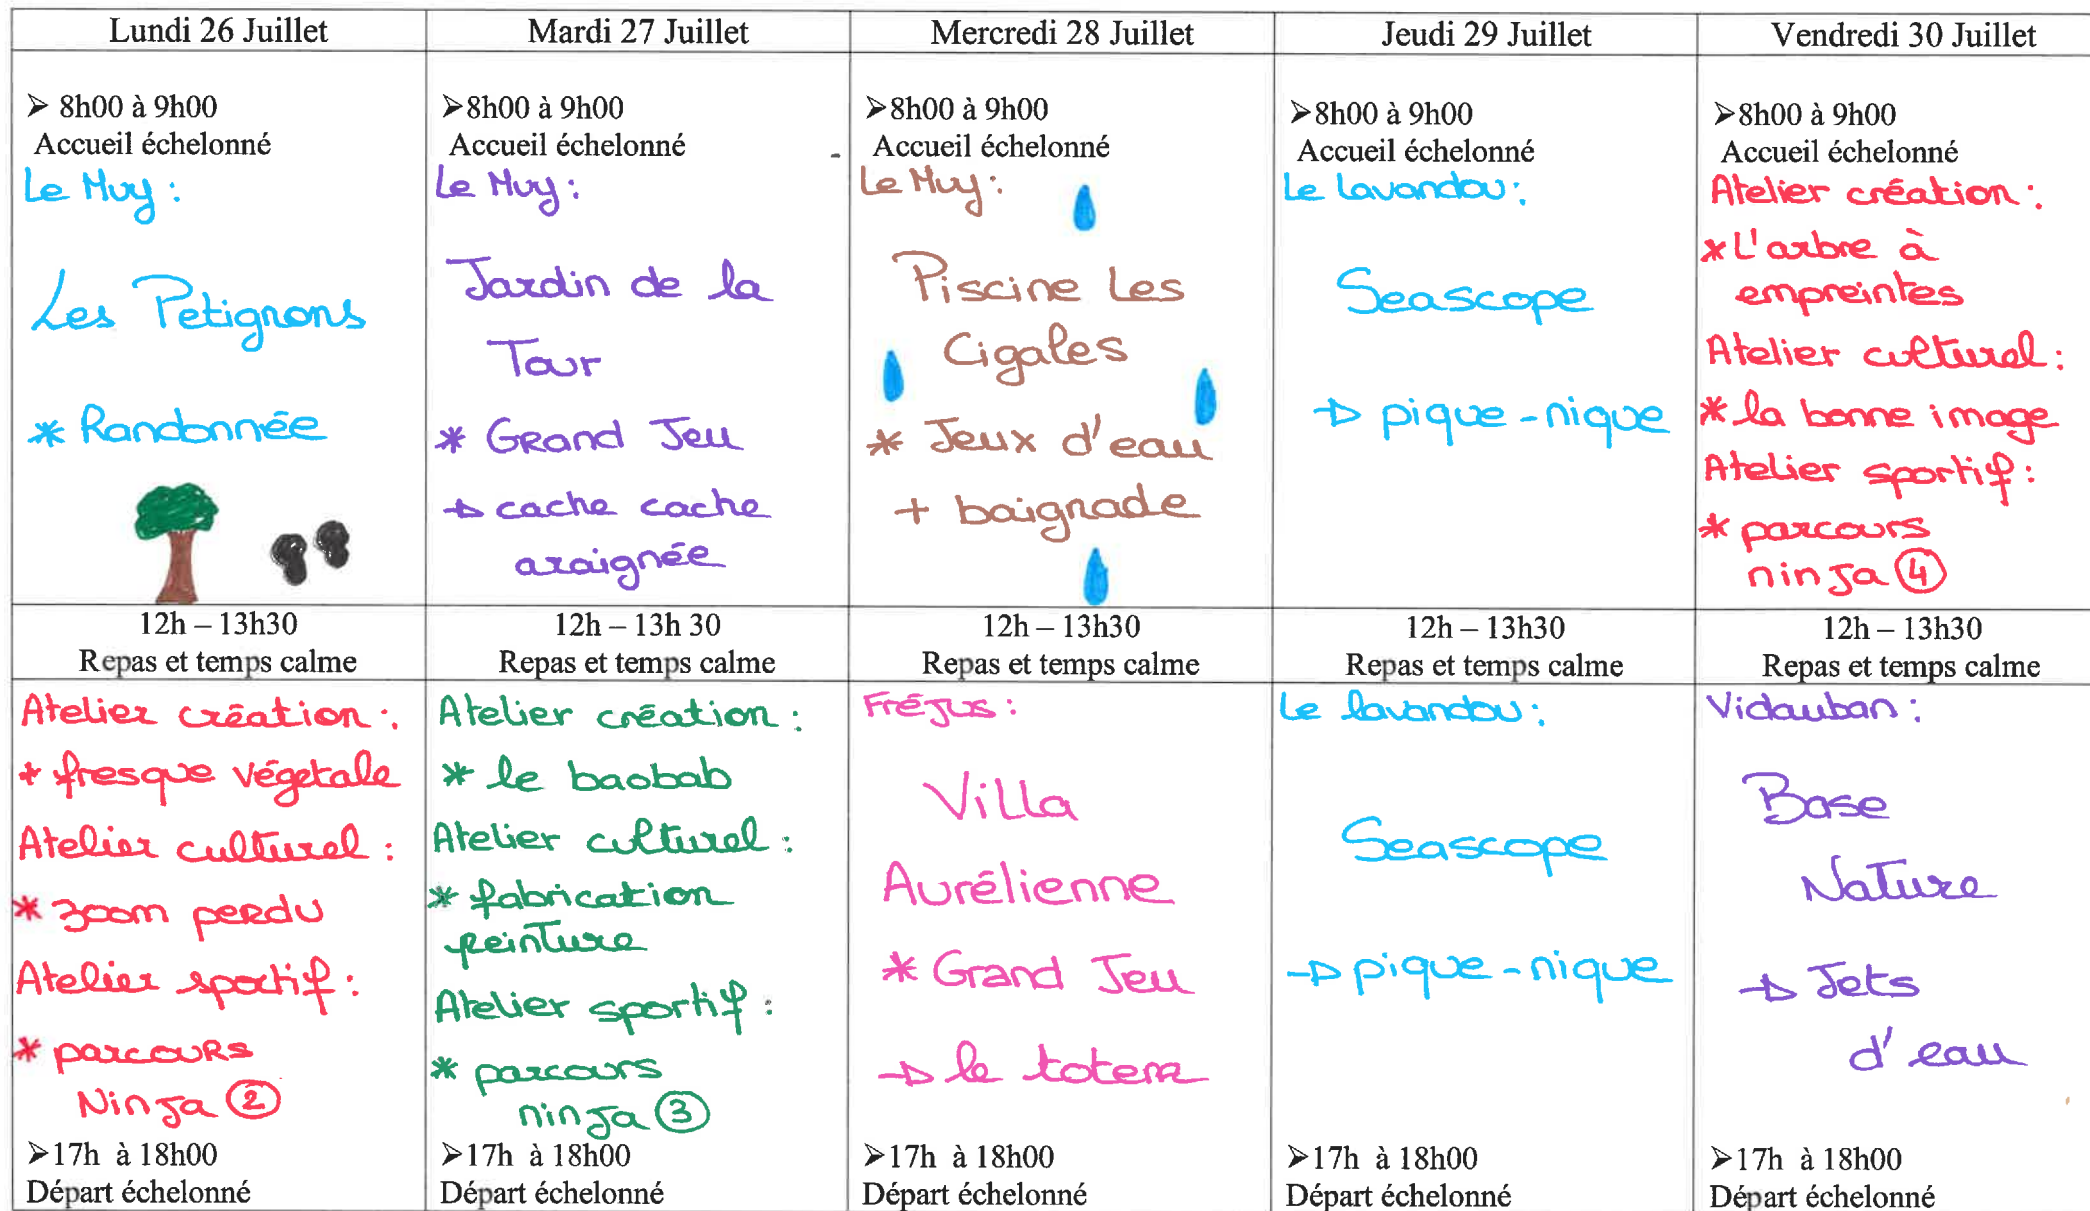 Lundi 26 Juillet
Mardi 27 Juillet
Mercredi 28 Juillet
Jeudi 29 Juillet
Vendredi 30 Juillet
➢ 8h00 à 9h00
Accueil échelonné
Le Muy :
Les Petignons
* Randonnée
➢8h00 à 9h00
Accueil échelonné
Le Muy :
Jardin de la
Tour
* Grand Jeu
→ cache cache
araignée
➢8h00 à 9h00
Accueil échelonné
Le Muy :
Piscine Les
Cigales
* Jeux d'eau
+ baignade
➢8h00 à 9h00
Accueil échelonné
Le lavandou :
Seascope
→ pique-nique
➢8h00 à 9h00
Accueil échelonné
Atelier création :
* L'arbre à
empreintes
Atelier culturel :
* la bonne image
Atelier sportif :
* parcours
ninja ④
12h – 13h30
Repas et temps calme
12h – 13h 30
Repas et temps calme
12h – 13h30
Repas et temps calme
12h – 13h30
Repas et temps calme
12h – 13h30
Repas et temps calme
Atelier création :
* fresque végetale
Atelier culturel :
* zoom perdu
Atelier sportif :
* parcours
Ninja ②
➢17h à 18h00
Départ échelonné
Atelier création :
* le baobab
Atelier culturel :
* fabrication
peinture
Atelier sportif :
* parcours
ninja ③
➢17h à 18h00
Départ échelonné
Fréjus :
Villa
Aurélienne
* Grand Jeu
→ le totem
➢17h à 18h00
Départ échelonné
Le lavandou :
Seascope
→ pique-nique
➢17h à 18h00
Départ échelonné
Vidauban :
Base
Nature
→ Jets
d'eau
➢17h à 18h00
Départ échelonné